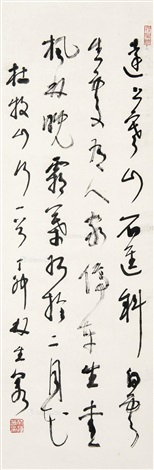 遠上寒山石徑斜白雲
生處有人家停車坐愛
楓林晚霜葉紅於二月花
杜牧山行一首丁卯